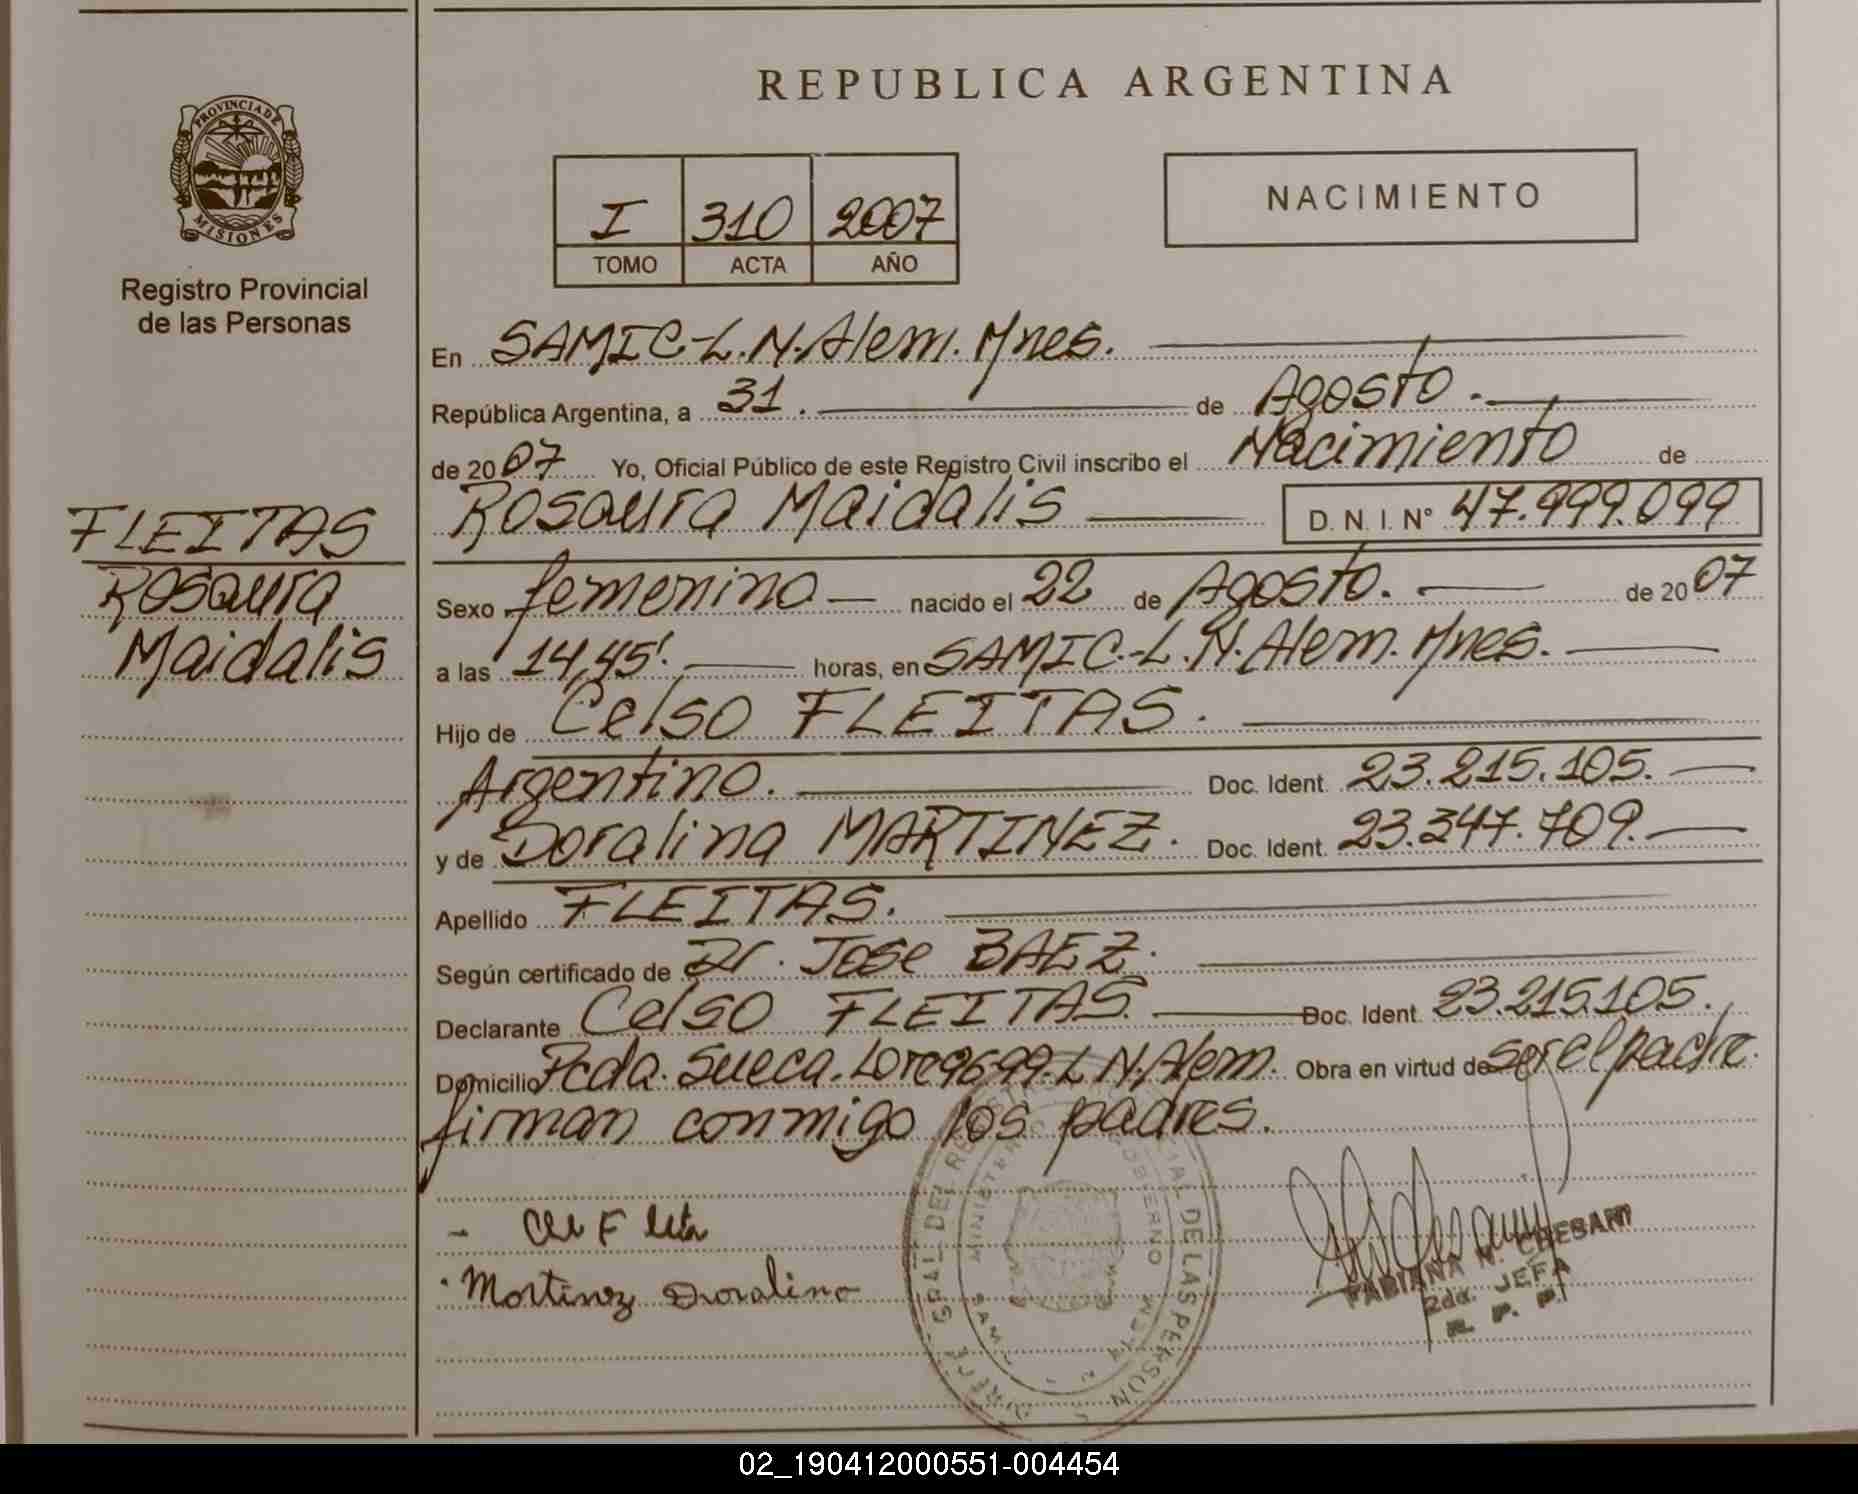 REPUBLICA ARGENTINA
PROVINCIA DE
MISIONES
Registro Provincial
de las Personas
I 310 2007
TOMO ACTA AÑO
NACIMIENTO
En SAMIC-L.N.Alem. Mnes.
República Argentina, a 31. de Agosto.
de 2007 Yo, Oficial Público de este Registro Civil inscribo el Nacimiento de
Rosaura Maidalis D. N. I. N° 47.999.099
FLEITAS
Rosaura
Maidalis
Sexo femenino nacido el 22 de Agosto. de 2007
a las 14,45'. horas, en SAMIC.-L.N.Alem. Mnes.
Hijo de Celso FLEITAS.
Argentino. Doc. Ident. 23.215.105.
y de Doralina MARTINEZ. Doc. Ident. 23.347.709.
Apellido FLEITAS.
Según certificado de Dr. Jose BAEZ.
Declarante Celso FLEITAS. Doc. Ident. 23.215.105.
Domicilio Pcda. Sueca. L.N.Alem. Obra en virtud de ser el padre.
firman conmigo los padres.
Martinez Doralina
FABIANA N. CHESANI
2da. JEFA
R. P. P.
MINISTERIO GOBIERNO
02_190412000551-004454